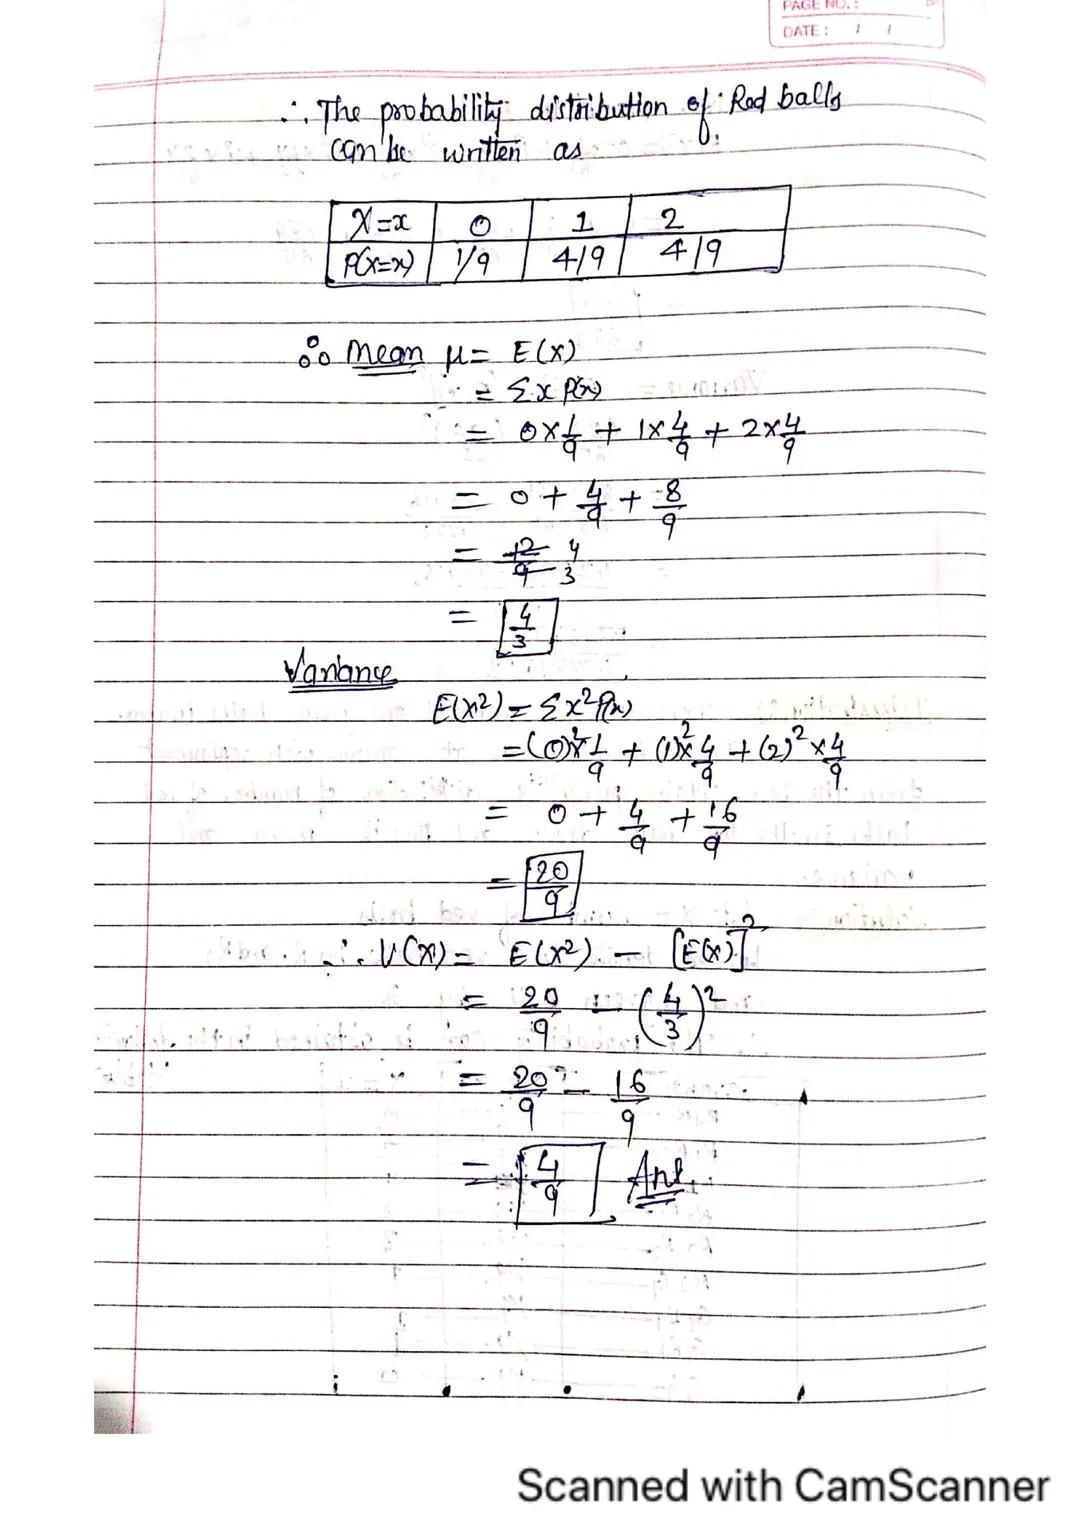 PAGE NO.:
DATE: / /
∴ The probability distribution of Red balls
can be written as
X=x 0 1 2
P(X=x) 1/9 4/9 4/9
∴ Mean μ = E(x)
= Σx P(x)
= 0×1/9 + 1×4/9 + 2×4/9
= 0 + 4/9 + 8/9
= 12/9 4/3
= 4/3
Variance
E(x²) = Σx²P(x)
= (0)²×1/9 + (1)²×4/9 + (2)²×4/9
= 0 + 4/9 + 16/9
= 20/9
∴ V(X) = E(x²) − [E(x)]²
= 20/9 − (4/3)²
= 20/9 − 16/9
= 4/9 Ans.
Scanned with CamScanner